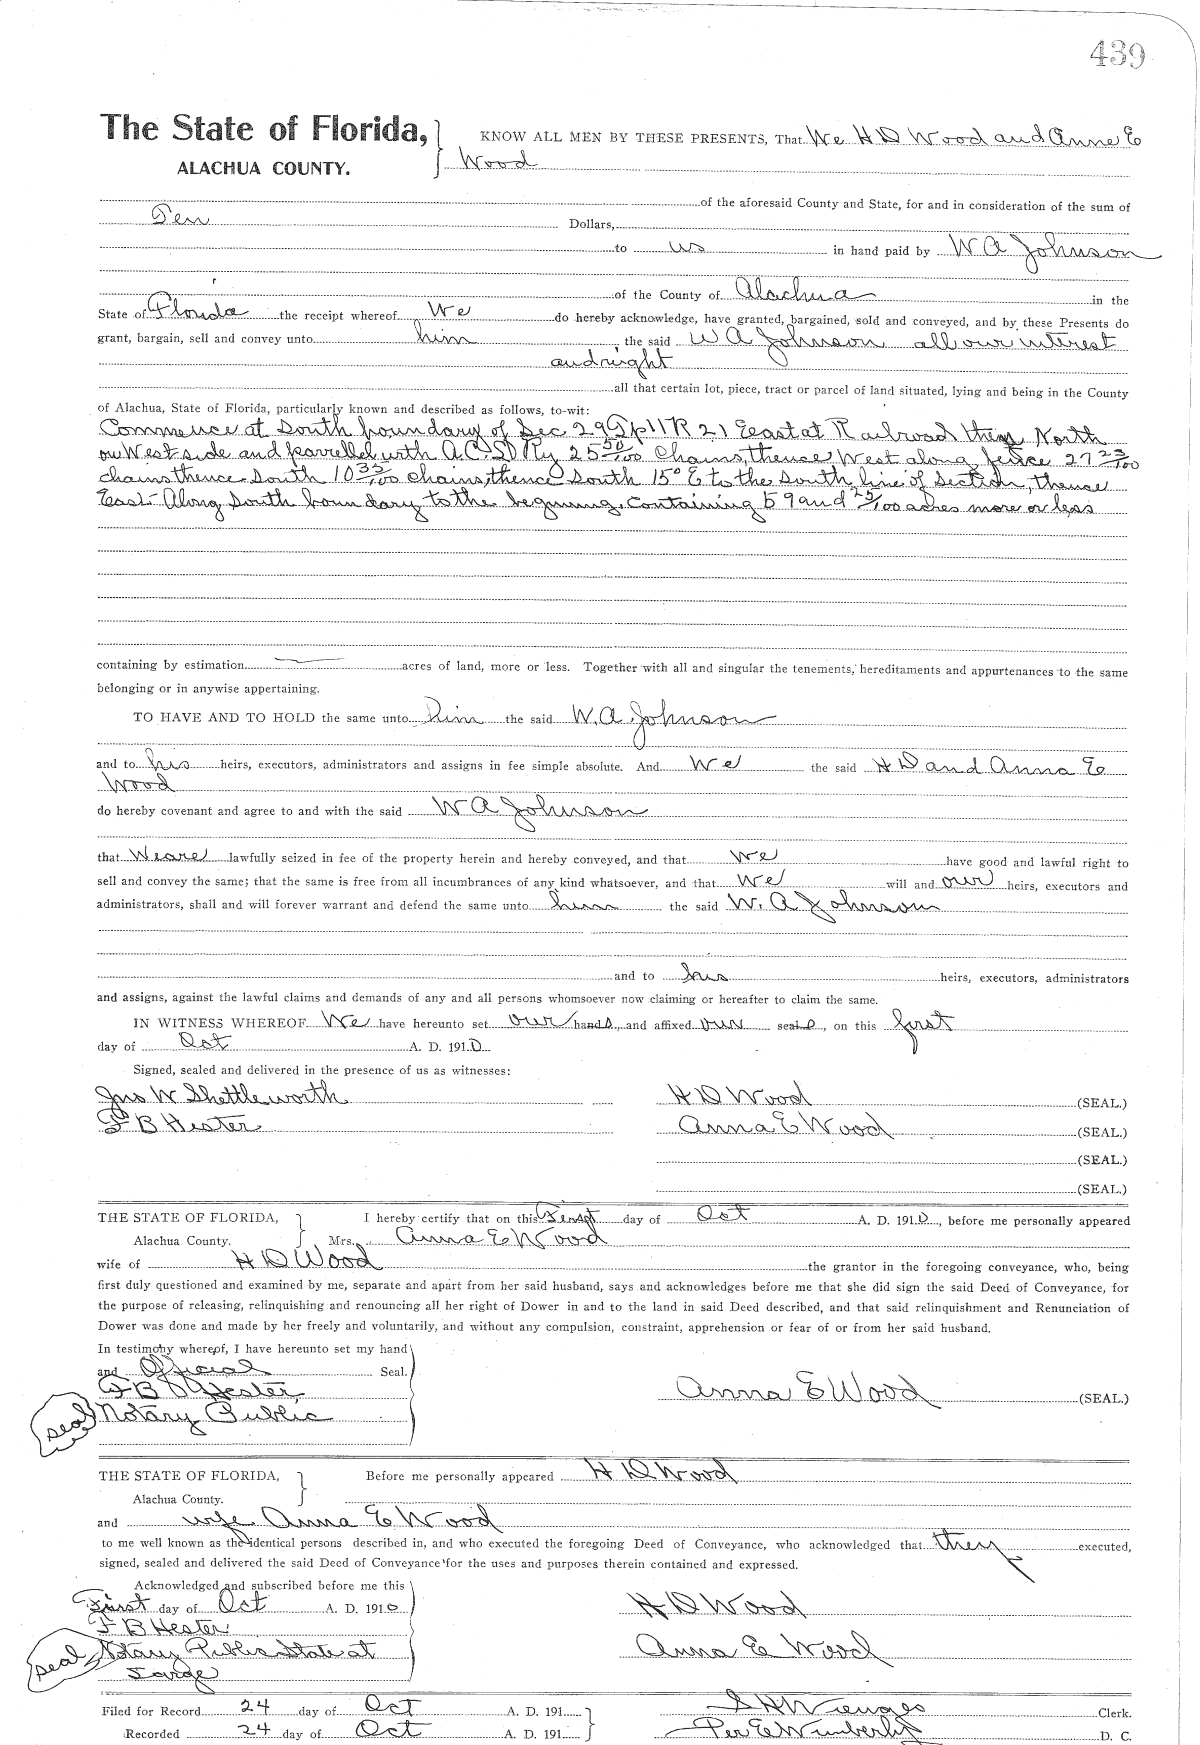 439
The State of Florida, KNOW ALL MEN BY THESE PRESENTS, That We H D Wood and Anne E
ALACHUA COUNTY. Wood
of the aforesaid County and State, for and in consideration of the sum of
Ten Dollars,
to us in hand paid by W A Johnson
of the County of Alachua in the
State of Florida the receipt whereof We do hereby acknowledge, have granted, bargained, sold and conveyed, and by these Presents do
grant, bargain, sell and convey unto him, the said W A Johnson all our interest
and right
all that certain lot, piece, tract or parcel of land situated, lying and being in the County
of Alachua, State of Florida, particularly known and described as follows, to-wit:
Commence at South boundary of Sec 29 Tp 11 R 21 East at Railroad North
on West side and parrelled with A.C.S.D Ry 25 50/100 Chains, thence West along fence 27 25/100
chains thence South 10 35/100 chains, thence South 15° E to the South line of Section, thence
East Along South boundary to the beginning, Containing 59 and 25/100 acres more or less
containing by estimation acres of land, more or less. Together with all and singular the tenements, hereditaments and appurtenances to the same
belonging or in anywise appertaining.
TO HAVE AND TO HOLD the same unto him the said W. A. Johnson
and to his heirs, executors, administrators and assigns in fee simple absolute. And We the said H D and Anna E
Wood
do hereby covenant and agree to and with the said W A Johnson
that We are lawfully seized in fee of the property herein and hereby conveyed, and that We have good and lawful right to
sell and convey the same; that the same is free from all incumbrances of any kind whatsoever, and that We will and our heirs, executors and
administrators, shall and will forever warrant and defend the same unto him the said W. A Johnson
and to his heirs, executors, administrators
and assigns, against the lawful claims and demands of any and all persons whomsoever now claiming or hereafter to claim the same.
IN WITNESS WHEREOF We have hereunto set our hands, and affixed our seals, on this first
day of Oct A. D. 1910
Signed, sealed and delivered in the presence of us as witnesses:
Jno W Shettleworth H D Wood (SEAL.)
F B Hester Anna E Wood (SEAL.)
(SEAL.)
(SEAL.)
THE STATE OF FLORIDA, I hereby certify that on this First day of Oct A. D. 1910, before me personally appeared
Alachua County. Mrs. Anna E Wood
wife of H D Wood the grantor in the foregoing conveyance, who, being
first duly questioned and examined by me, separate and apart from her said husband, says and acknowledges before me that she did sign the said Deed of Conveyance, for
the purpose of releasing, relinquishing and renouncing all her right of Dower in and to the land in said Deed described, and that said relinquishment and Renunciation of
Dower was done and made by her freely and voluntarily, and without any compulsion, constraint, apprehension or fear of or from her said husband.
In testimony whereof, I have hereunto set my hand
and Official Seal.
F B Hester Anna E Wood (SEAL.)
seal Notary Public
THE STATE OF FLORIDA, Before me personally appeared H D Wood
Alachua County.
and wife Anna E Wood
to me well known as the identical persons described in, and who executed the foregoing Deed of Conveyance, who acknowledged that they executed,
signed, sealed and delivered the said Deed of Conveyance for the uses and purposes therein contained and expressed.
Acknowledged and subscribed before me this
First day of Oct A. D. 1910 H D Wood
F B Hester
seal Notary Public State at Anna E Wood
Large
Filed for Record 24 day of Oct A. D. 191 S H Wienges Clerk.
Recorded 24 day of Oct A. D. 191 Per E Wimberly D. C.